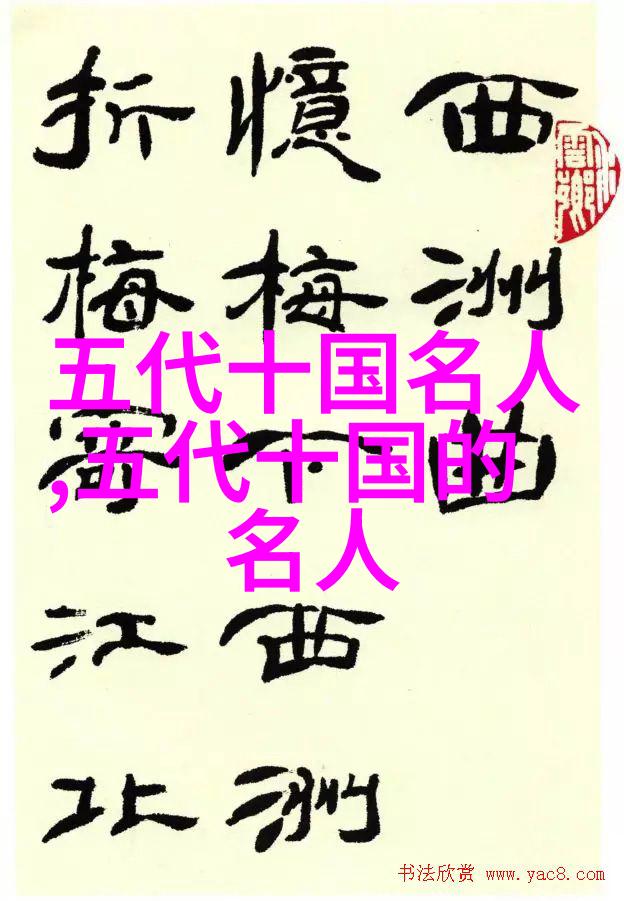 西洲曲
憶梅下西洲
折梅寄江北
五代十国名人
,五代十国的
名人
书法欣赏 www.yac8.com